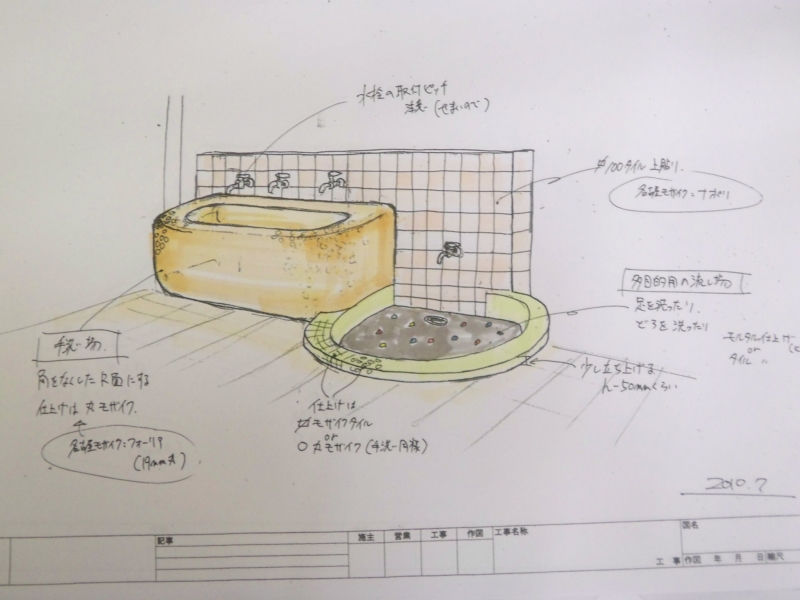 水栓の取付ピッチ
注意(せまいので)
□100タイル上貼り
名古屋モザイク:ナポリ
多目的用の流し場
足を洗ったり
どろを洗ったり
モルタル仕上げ
or
タイル 〃
少し立ち上げます
H=50mmくらい
手洗い場
角をなくしたR面にする
仕上げは丸モザイク
名古屋モザイク:フォーリア
(19mm丸)
仕上げは
□モザイクタイル
or
○丸モザイク(手洗い同様)
2010.7
記事
施主
営業
工事
作図
工事名称
図名
工事
作図 年 月 日
縮尺